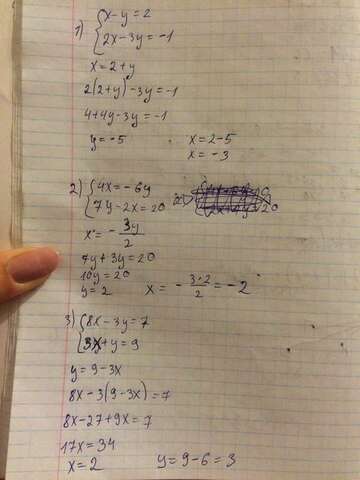 1) { x-y=2
2x-3y=-1
x=2+y
2(2+y)-3y=-1
4+4y-3y=-1
y=-5 x=2-5
x=-3
2) { 4x=-6y
7y-2x=20
x=-3y/2
7y+3y=20
10y=20
y=2 x=-3·2/2=-2
3) { 8x-3y=7
3x+y=9
y=9-3x
8x-3(9-3x)=7
8x-27+9x=7
17x=34
x=2 y=9-6=3